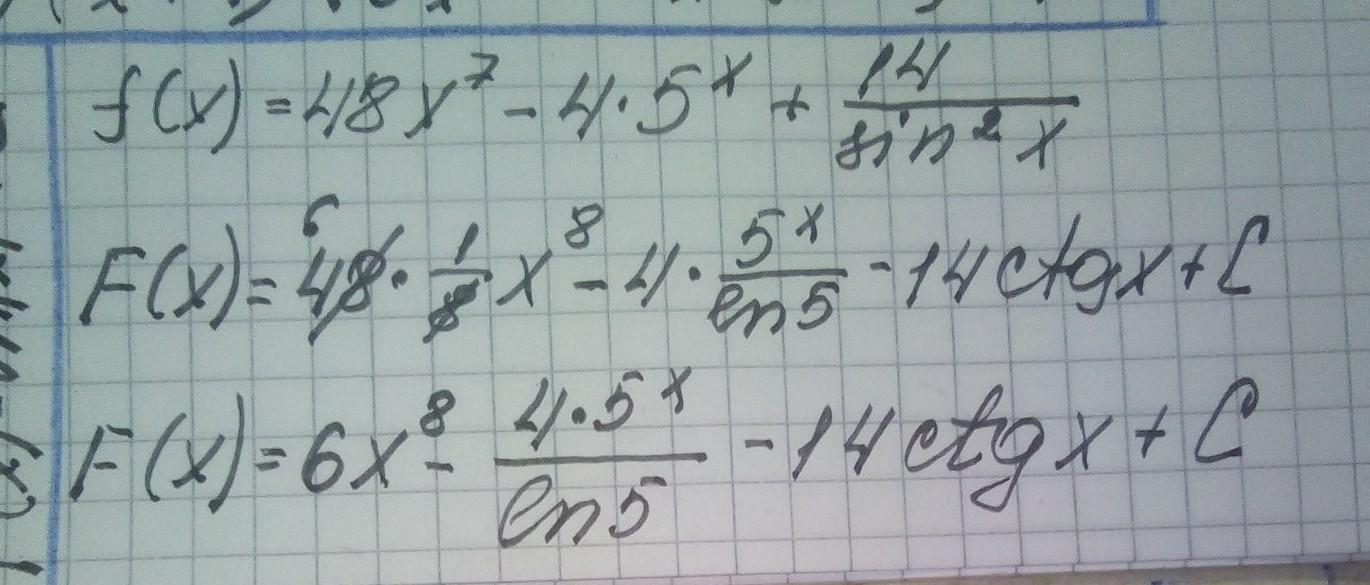 f(x) = 48x⁷ - 4·5ˣ + 14/sin²x
F(x) = 6 48·1/8 x⁸ - 4·5ˣ/ln5 - 14ctgx + C
F(x) = 6x⁸ - 4·5ˣ/ln5 - 14ctgx + C